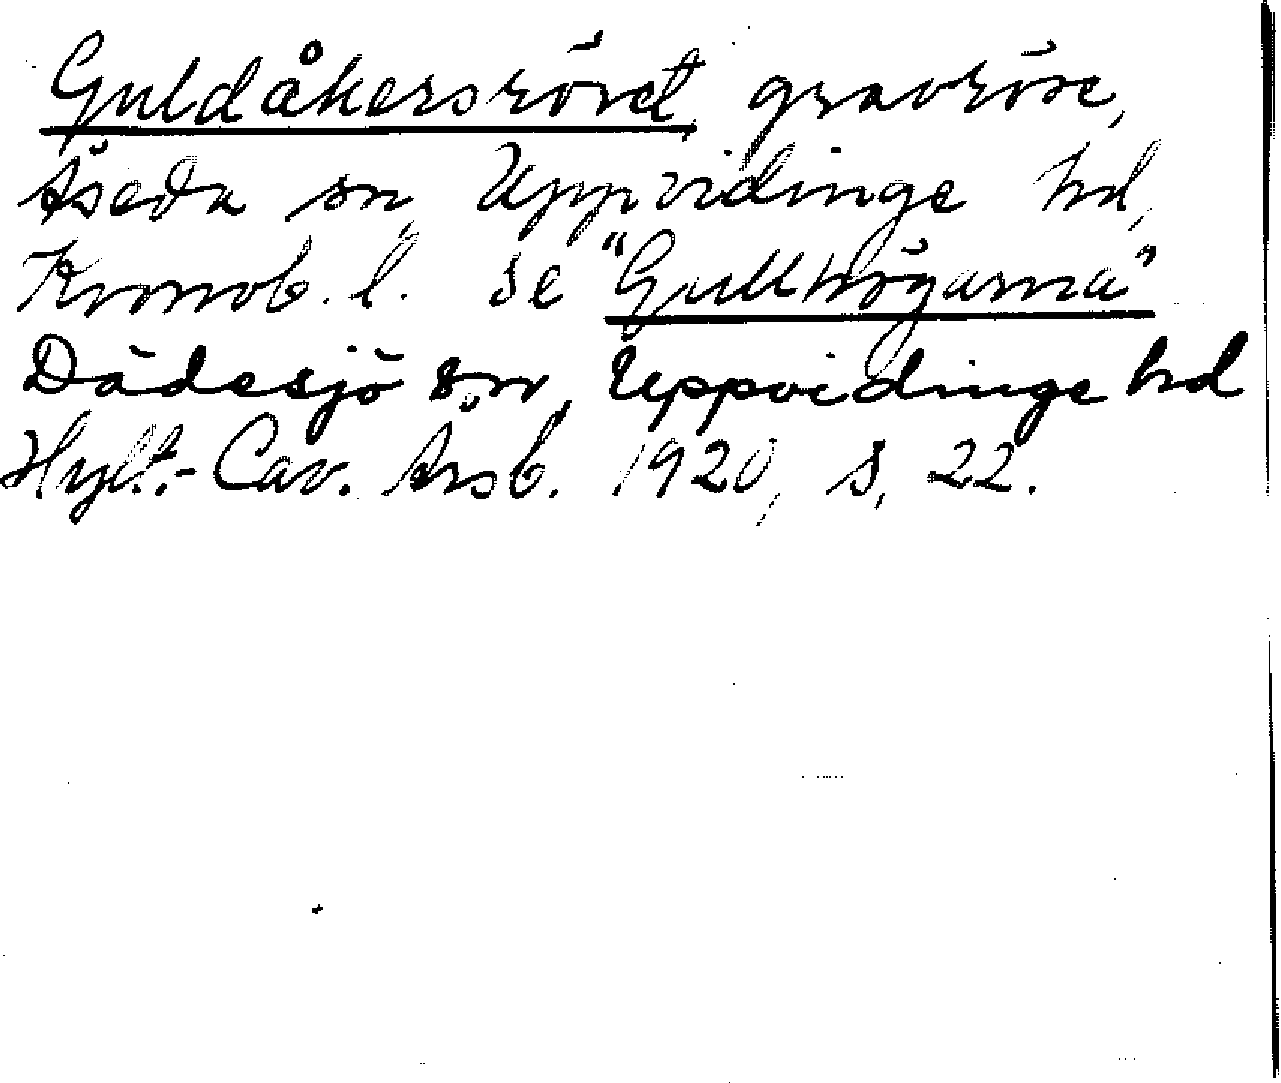 Guldåkersröset, gravröse,
Åseda sn, Uppvidinge hd,
Kronob. l. se "Gullhögarna"
Dädesjö s:n, Uppvidinge hd
Hylt.-Cav. Årsb. 1920, s. 22.